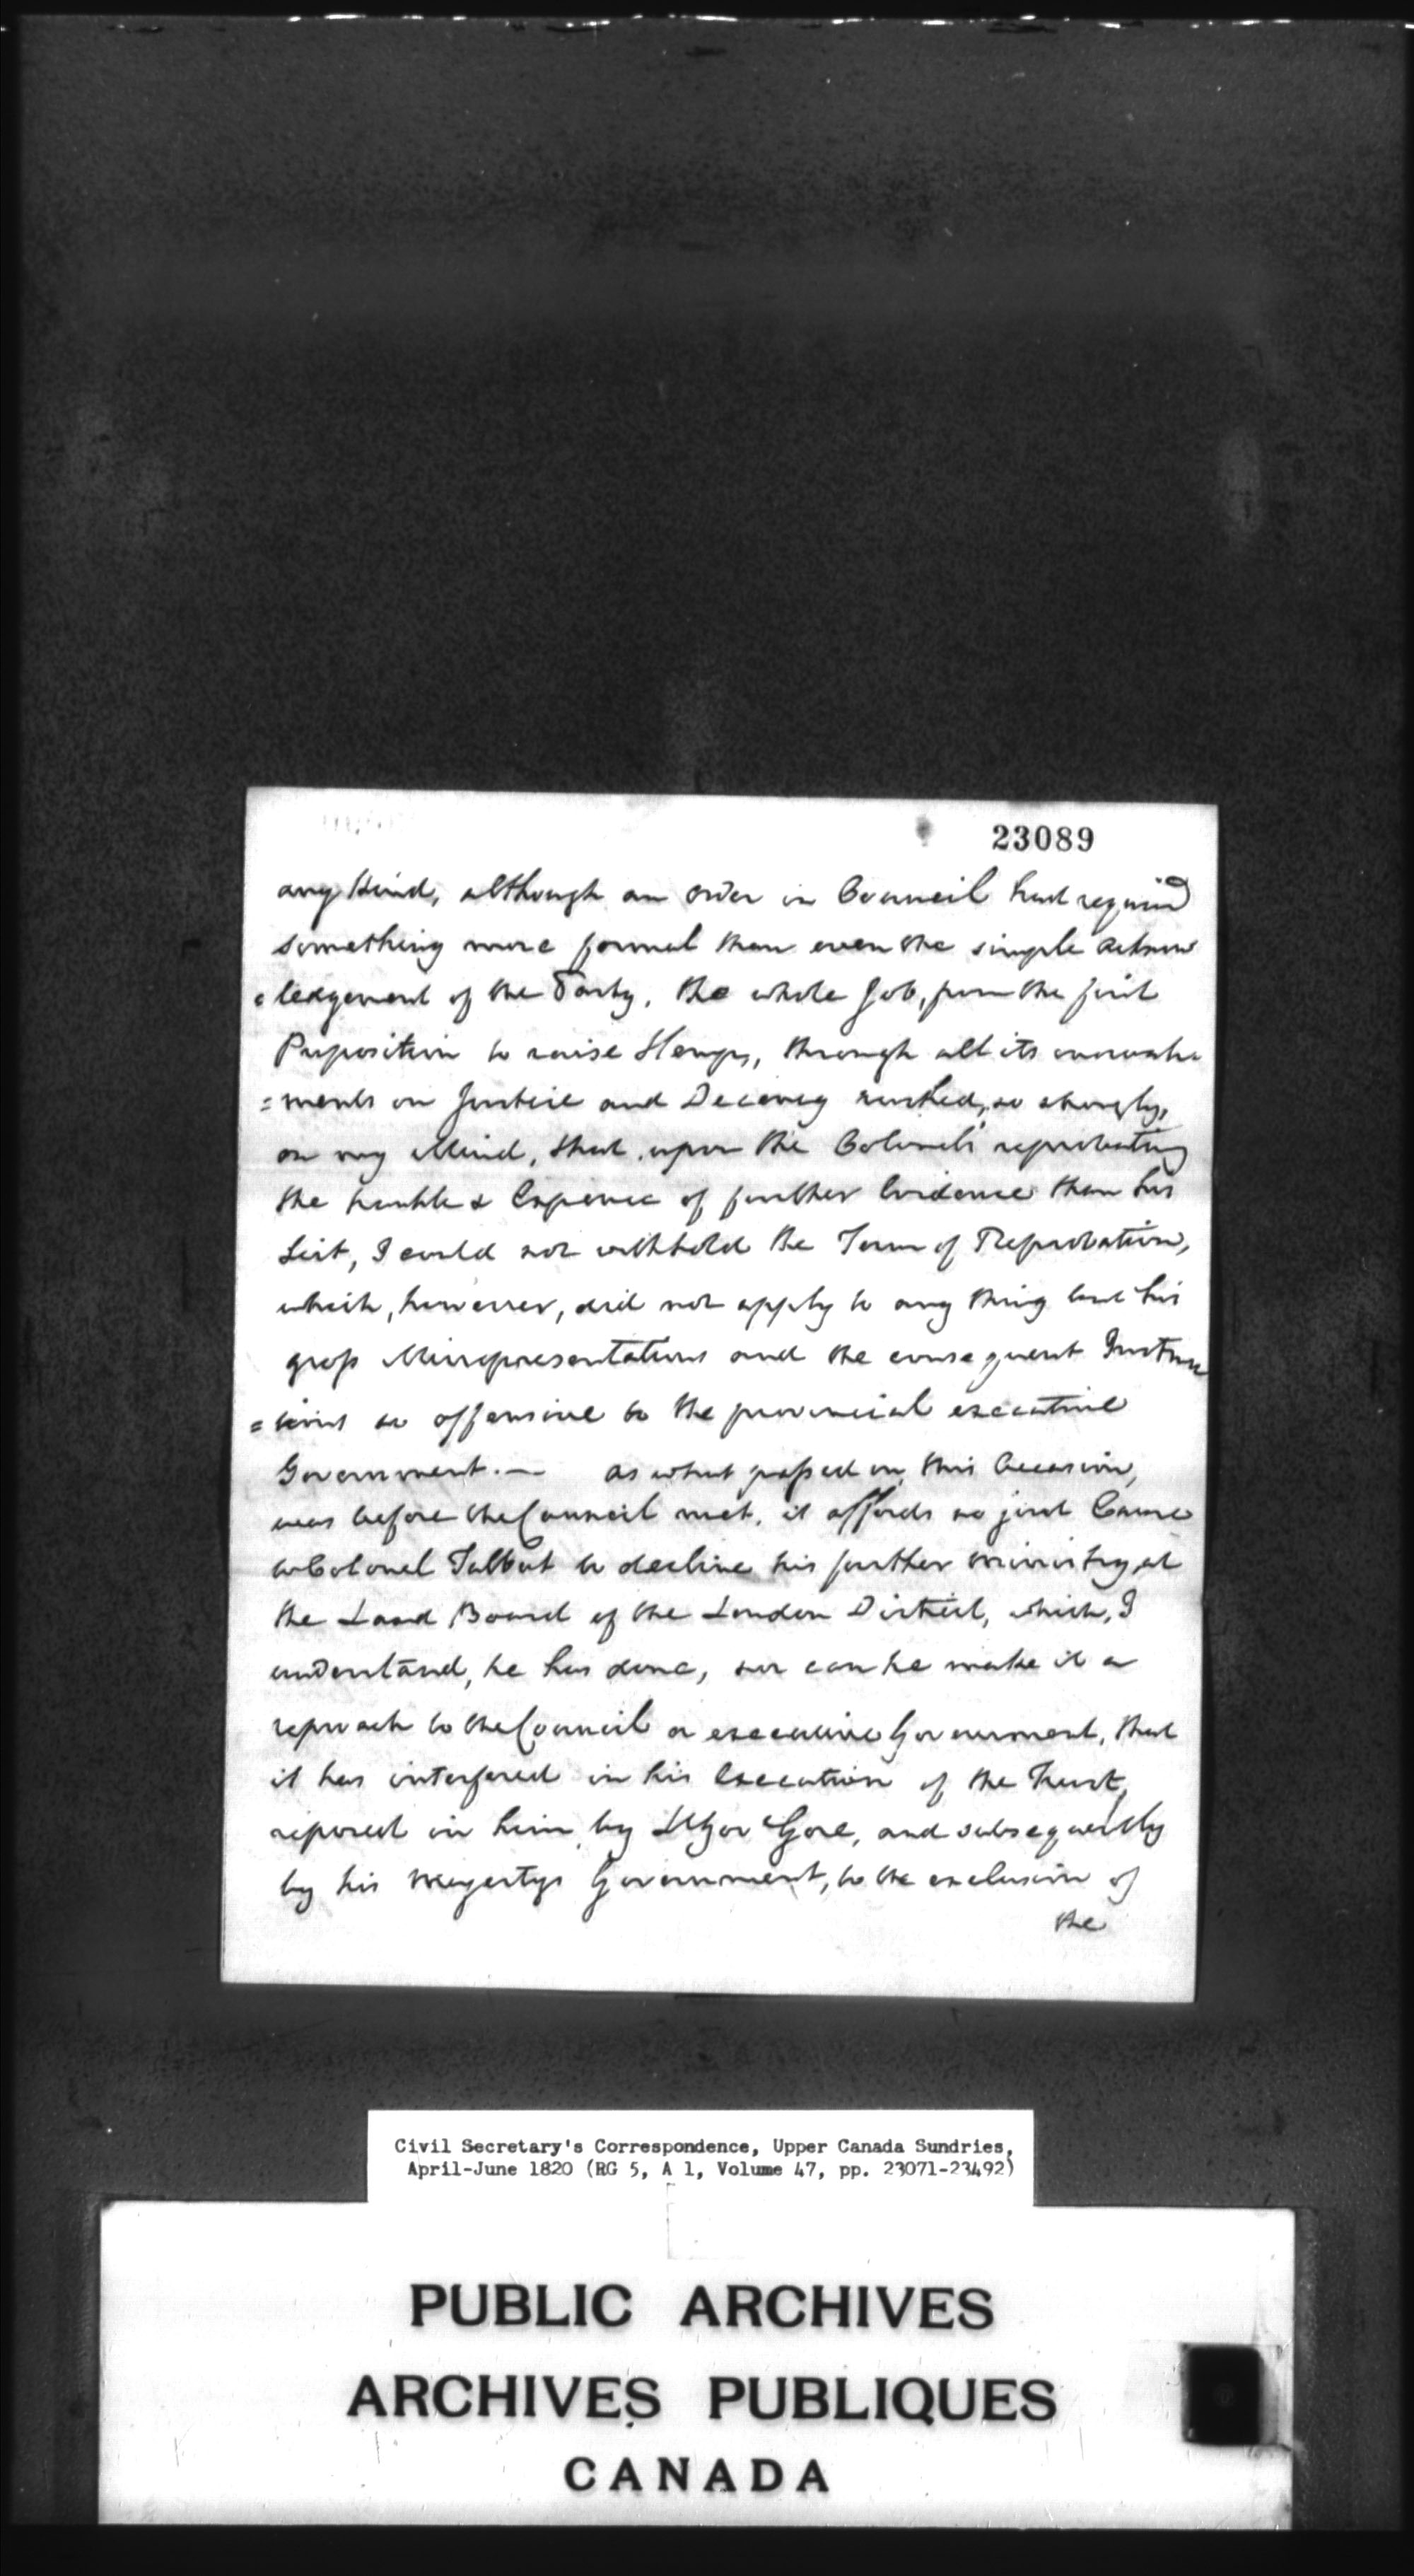 23089
any kind, although an order in Council had requird
something more formal than even the simple Acknow
=ledgement of the Party. the whole Job, from the first
Proposition to raise Hemp, through all its encroach
=ments on Justice and Decency rushed, so strongly,
on my Mind, that, upon the Colonel's reprobating
the trouble & Expence of further Evidence than his
List, I could not withhold the Term of Reprobation,
which, however, did not apply to any thing but his
gross Misrepresentations and the consequent Instruc
=tions so offensive to the provincial executive
Government.— As what passed on this Occasion,
was before the Council met, it affords no just Cause
to Colonel Talbot to decline his further ministry at
the Land Board of the London District, which, I
understand, he has done, nor can he make it a
reproach to the Council or executive Government, that
it has interfered in his Execution of the Trust,
reposed in him by Lt Gov Gore, and subsequently
by his Majestys Government, to the exclusion of
the
Civil Secretary's Correspondence, Upper Canada Sundries,
April-June 1820 (RG 5, A 1, Volume 47, pp. 23071-23492)
PUBLIC ARCHIVES
ARCHIVES PUBLIQUES
CANADA